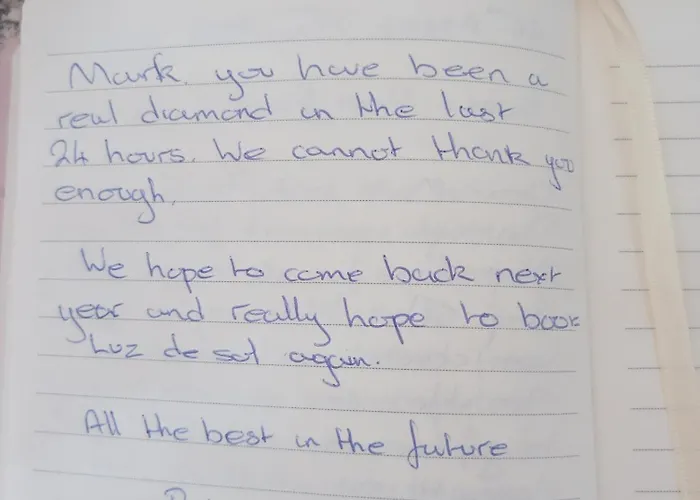 Mark, you have been a
real diamond in the last
24 hours. We cannot thank you
enough.
We hope to come back next
year and really hope to book
Luz de sol again.
All the best in the future